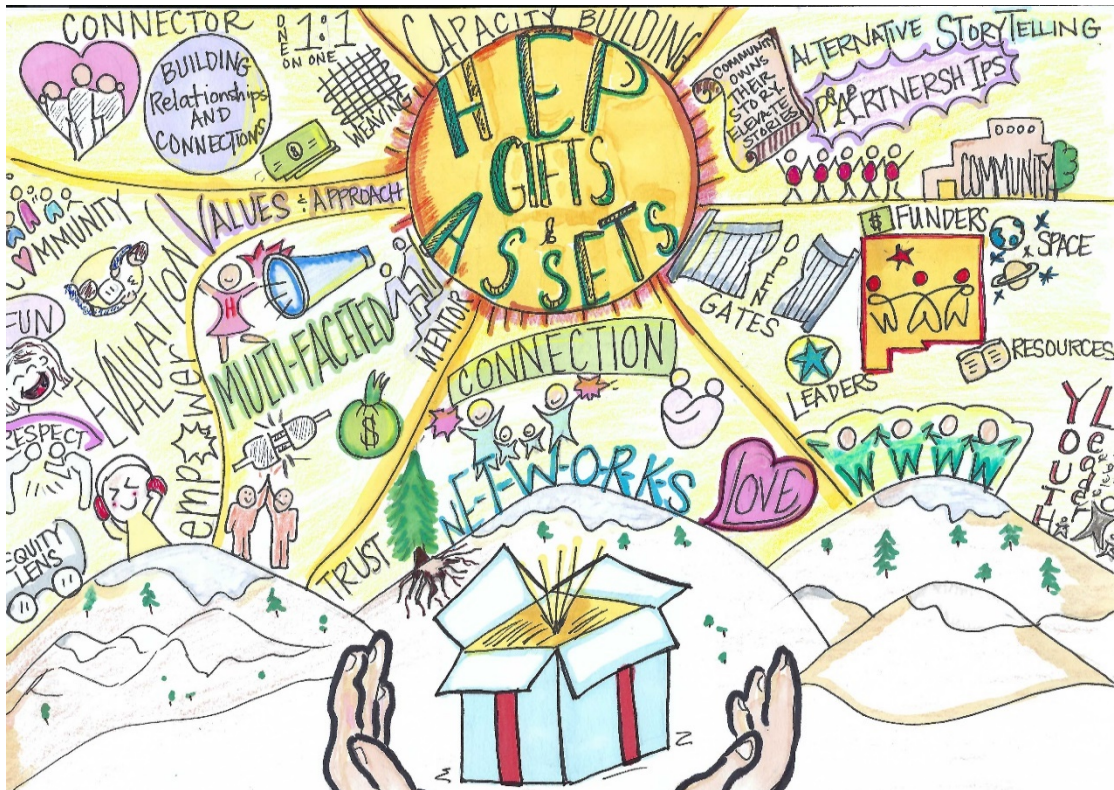 HEP
GIFTS
&
ASSETS
CONNECTOR
BUILDING
Relationships
AND
CONNECTIONS
ONE
ON ONE
1:1
WEAVING
CAPACITY BUILDING
COMMUNITY
OWNS
THEIR
STORY.
ELEVATE
STORIES
ALTERNATIVE STORYTELLING
PARTNERSHIPS
COMMUNITY
VALUES & APPROACH
COMMUNITY
EVALUATION
FUN
RESPECT
EQUITY
LENS
empower
H
MULTI-FACETED
MENTOR
$
TRUST
CONNECTION
N-E-T-W-O-R-K-S
LOVE
OPEN
GATES
$ FUNDERS
SPACE
LEADERS
RESOURCES
W W W W
YOUTH
Leaders